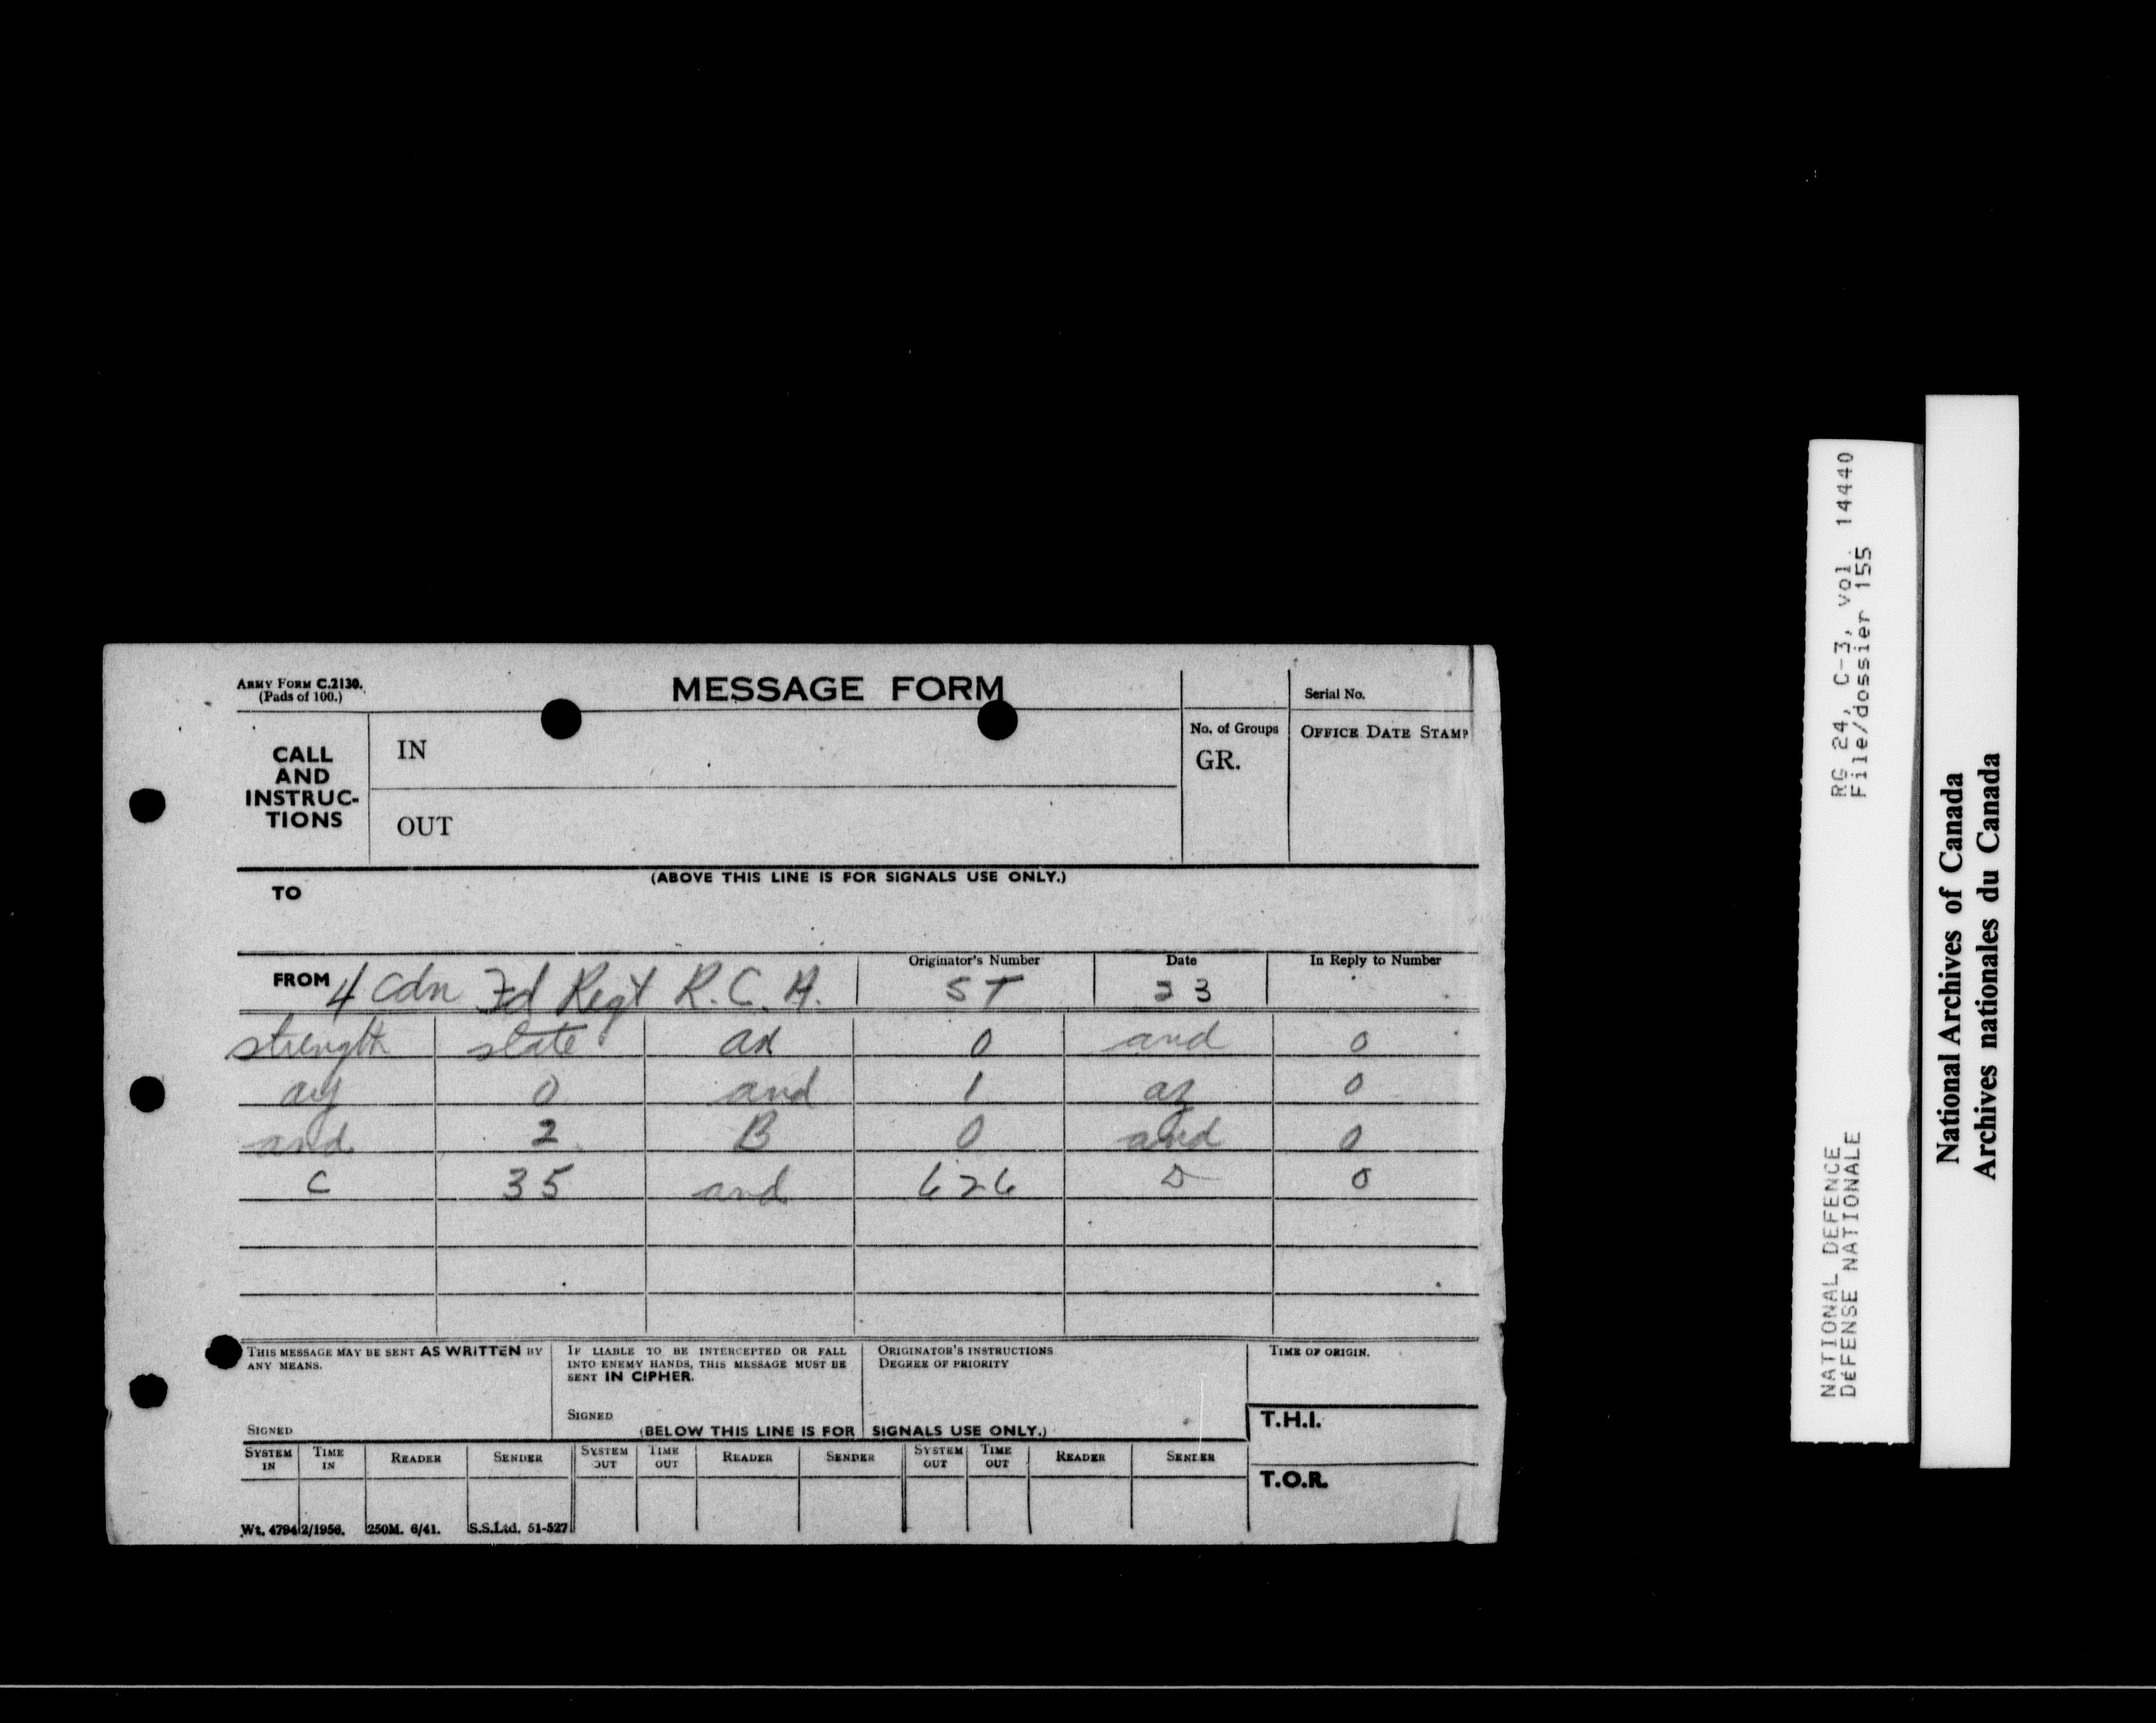 ARMY FORM C.2130.
(Pads of 100.)
MESSAGE FORM
Serial No.
CALL AND INSTRUC- TIONS
IN
OUT
No. of Groups
GR.
OFFICE DATE STAMP
(ABOVE THIS LINE IS FOR SIGNALS USE ONLY.)
TO
FROM 4 Cdn Fd Regt R.C.A.
Originator's Number ST
Date 23
In Reply to Number
strength state ax 0 and 0
ay 0 and 1 az 0
and 2 B 0 and 0
C 35 and 626 D 0
THIS MESSAGE MAY BE SENT AS WRITTEN BY
ANY MEANS.
SIGNED
IF LIABLE TO BE INTERCEPTED OR FALL
INTO ENEMY HANDS, THIS MESSAGE MUST BE
SENT IN CIPHER.
SIGNED
ORIGINATOR'S INSTRUCTIONS
DEGREE OF PRIORITY
TIME OF ORIGIN.
(BELOW THIS LINE IS FOR SIGNALS USE ONLY.)
T.H.I.
SYSTEM IN TIME IN READER SENDER SYSTEM OUT TIME OUT READER SENDER SYSTEM OUT TIME OUT READER SENDER
T.O.R.
Wt. 47942/1956. 250M. 6/41. S.S.Ltd. 51-527
NATIONAL DEFENCE RG 24, C-3, vol. 14440
DÉFENSE NATIONALE File/dossier 155
National Archives of Canada
Archives nationales du Canada